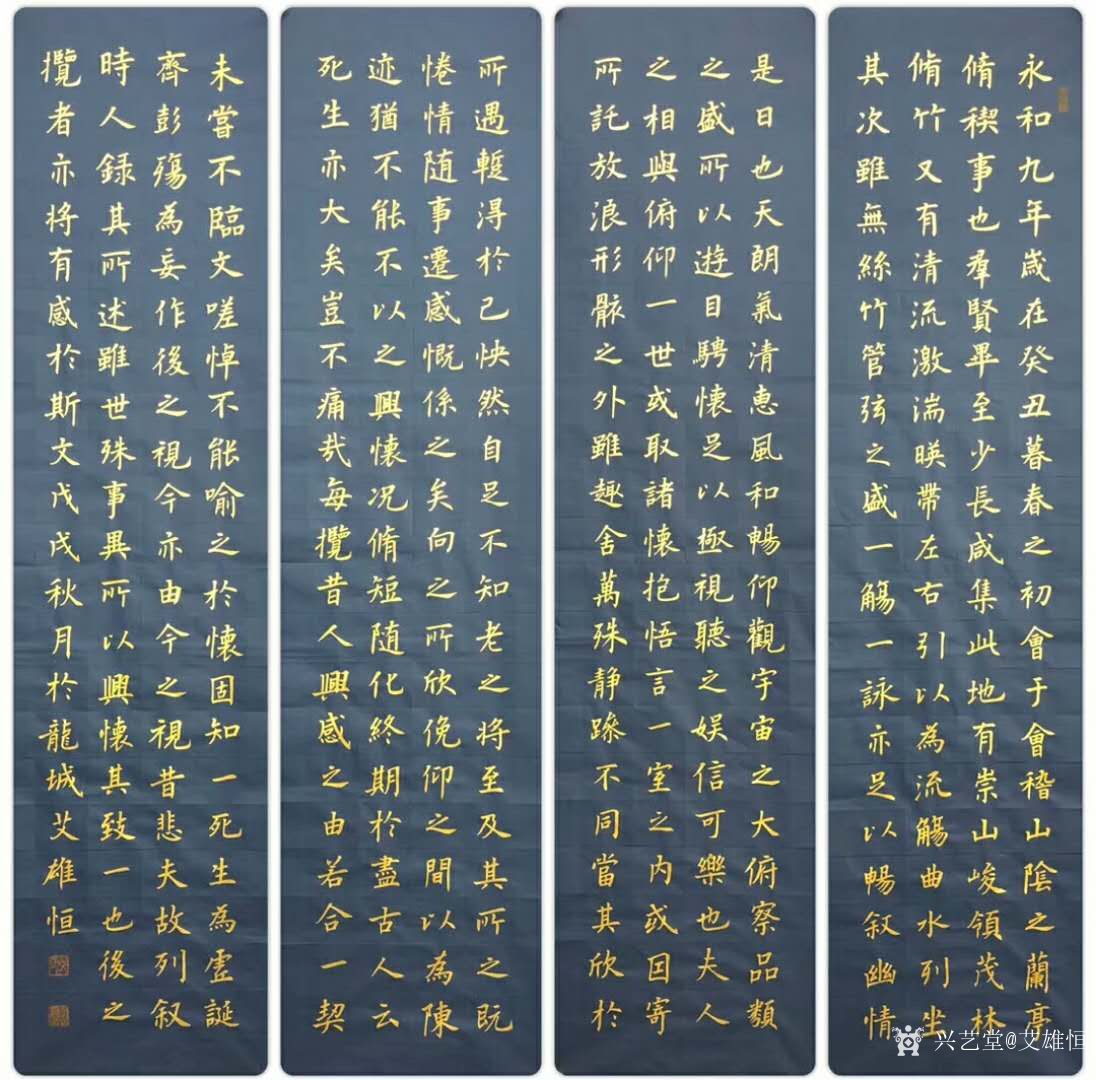 永和九年歲在癸丑暮春之初會于會稽山陰之蘭亭
脩稧事也羣賢畢至少長咸集此地有崇山峻領茂林
脩竹又有清流激湍暎帶左右引以為流觴曲水列坐
其次雖無絲竹管弦之盛一觴一詠亦足以暢叙幽情
是日也天朗氣清惠風和暢仰觀宇宙之大俯察品類
之盛所以遊目騁懷足以極視聽之娱信可樂也夫人
之相與俯仰一世或取諸懷抱悟言一室之内或因寄
所託放浪形骸之外雖趣舍萬殊静躁不同當其欣於
所遇暫得於己怏然自足不知老之将至及其所之既
惓情随事遷感慨係之矣向之所欣俛仰之間以為陳
迹猶不能不以之興懷况脩短随化終期於盡古人云
死生亦大矣豈不痛哉每攬昔人興感之由若合一契
未嘗不臨文嗟悼不能喻之於懷固知一死生為虚誕
齊彭殤為妄作後之視今亦由今之視昔悲夫故列叙
時人録其所述雖世殊事異所以興懷其致一也後之
攬者亦将有感於斯文戊戌秋月於龍城艾雄恒
兴艺堂@艾雄恒